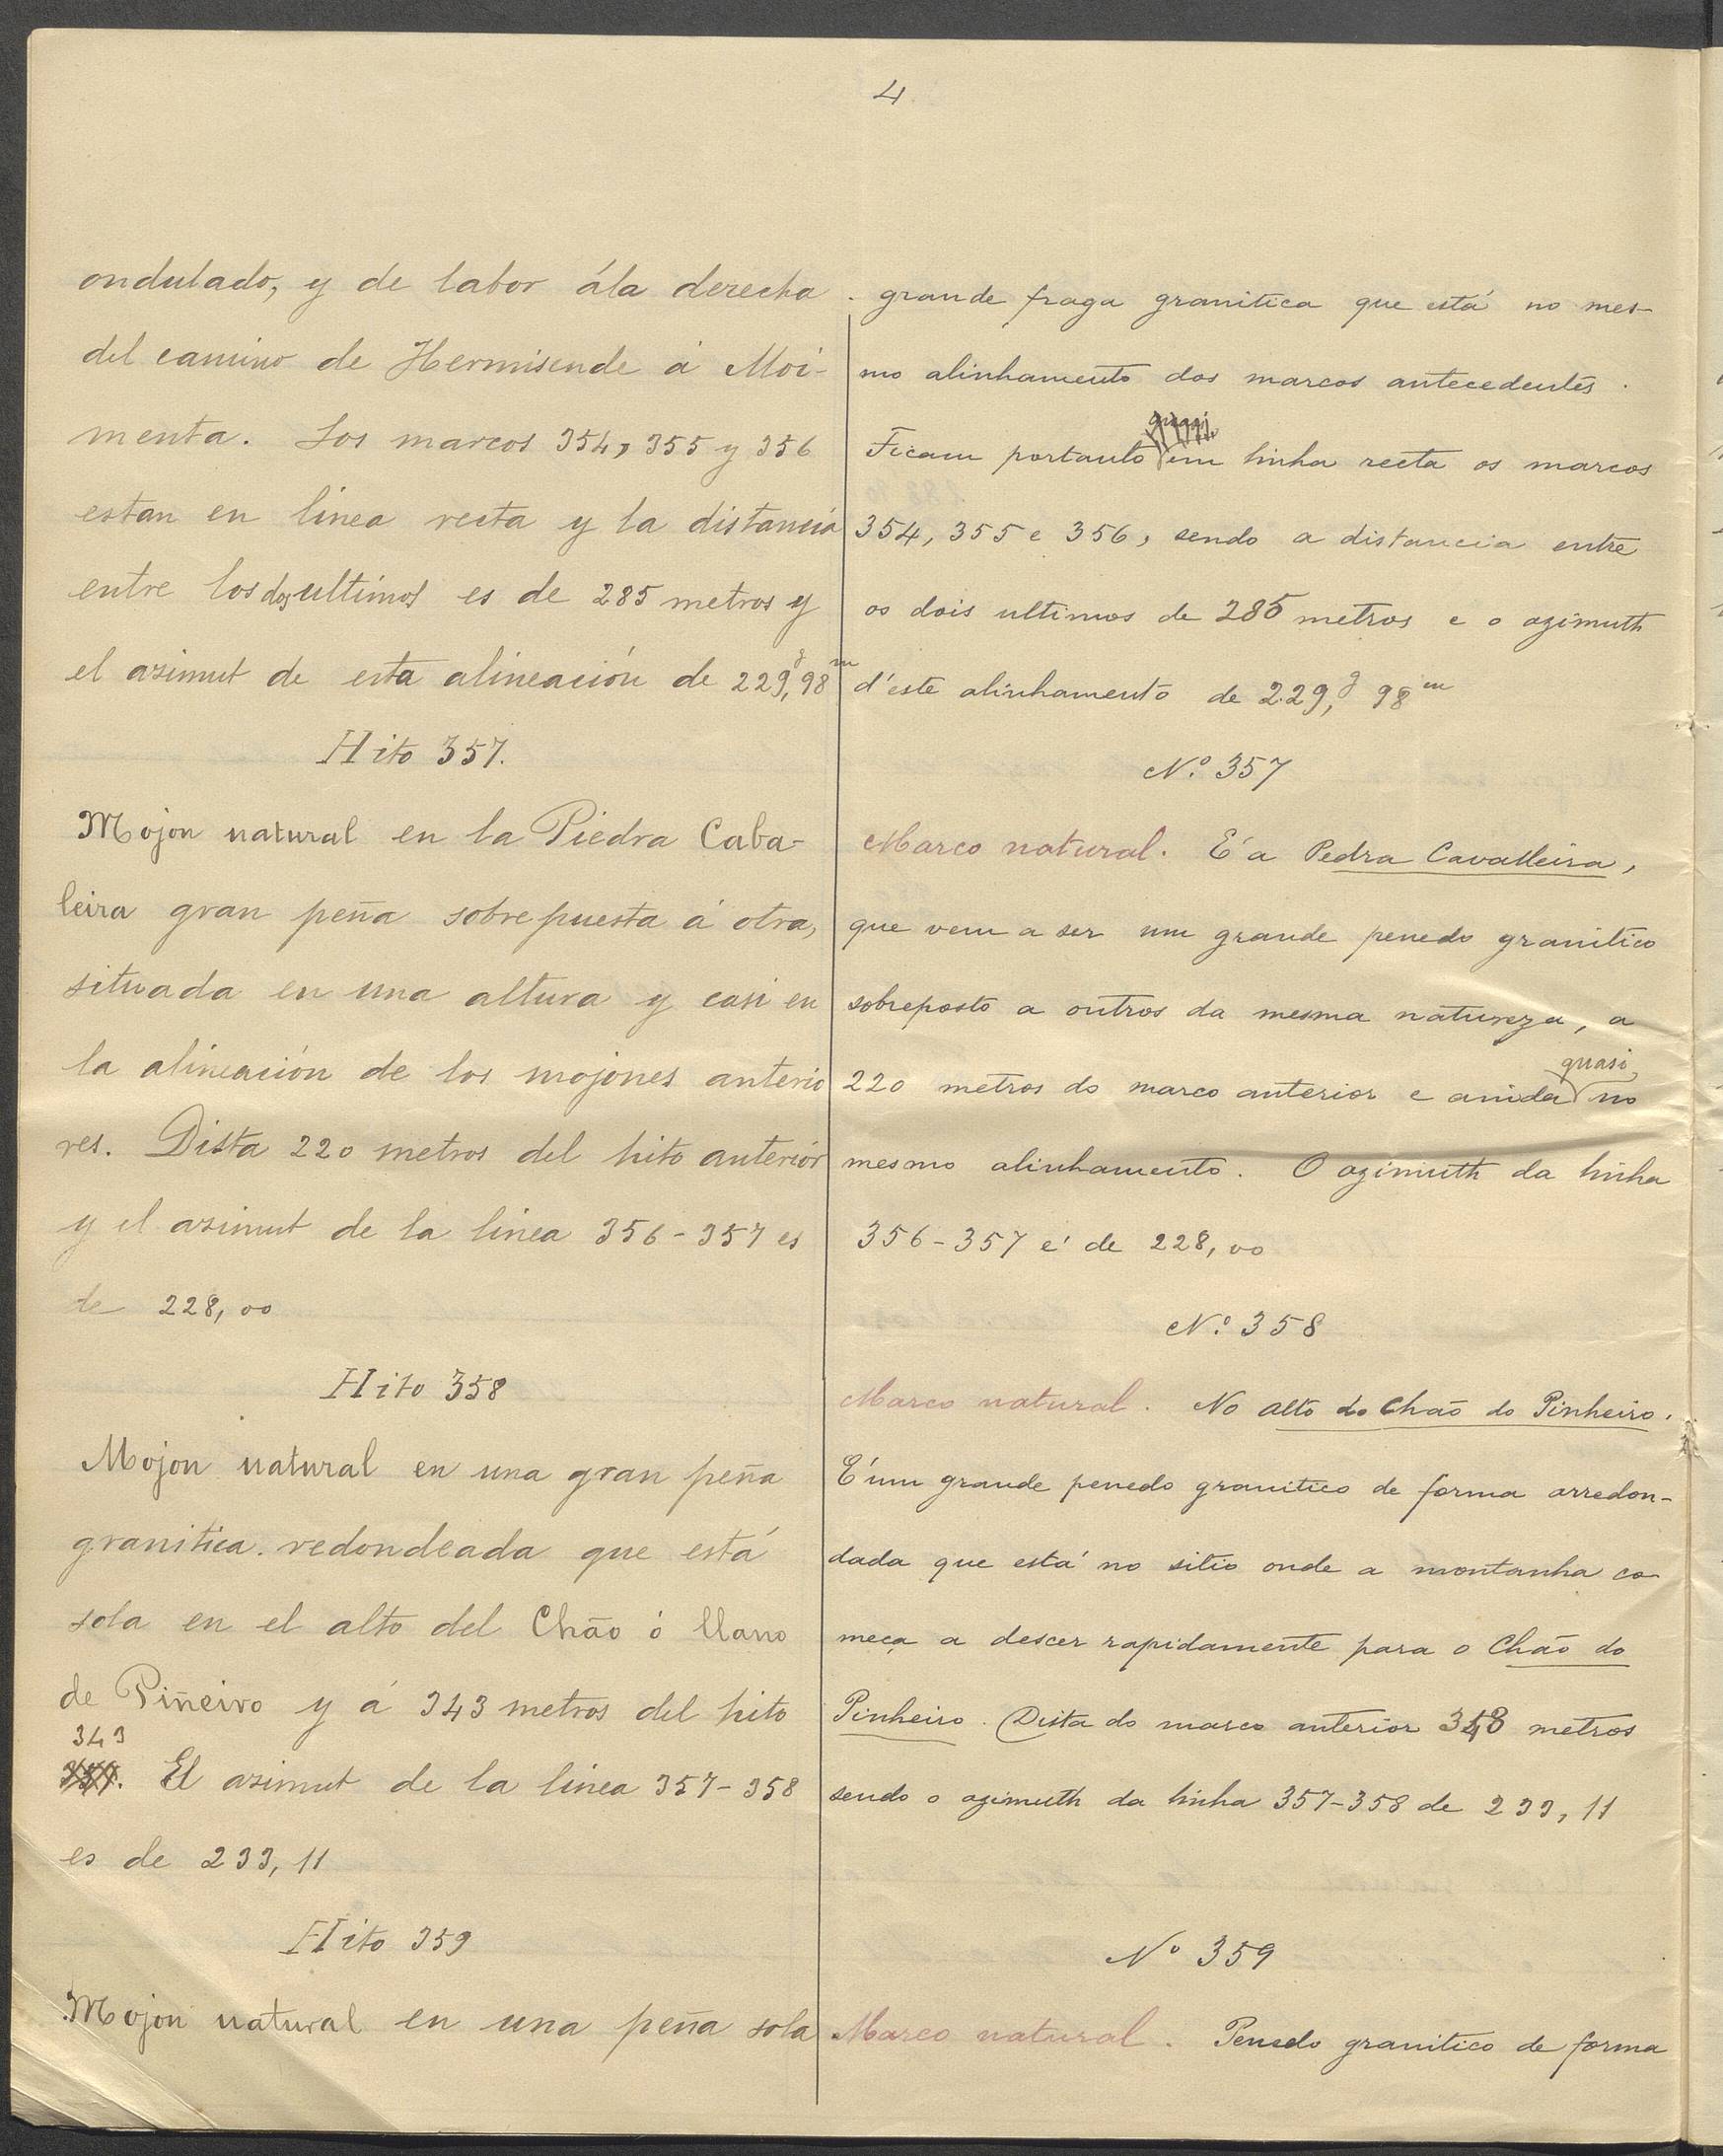 4
ondulado, y de labor ála derecha
del camino de Hermisende á Moi-
menta. Los marcos 354, 355 y 356
estan en linea recta y la distancia
entre los dos ultimos es de 285 metros y
el asimut de esta alineación de 229,g 98m
Hito 357.
Mojon natural en la Piedra Caba-
leira gran peña sobrepuesta á otra,
situada en una altura y casi en
la alineación de los mojones anterio
res. Dista 220 metros del hito anterior
y el asimut de la linea 356-357 es
de 228,00
Hito 358
Mojon natural en una gran peña
granitica redondeada que está
sola en el alto del Chão ó llano
de Piñeiro y á 343 metros del hito
343
357. El asimut de la linea 357-358
es de 233,11
Hito 359
Mojon natural en una peña sola
grande fraga granitica que está no mes-
mo alinhamento dos marcos antecedentes.
quasi
Ficam portanto em linha recta os marcos
354, 355 e 356, sendo a distancia entre
os dois ultimos de 285 metros e o azimuth
d'este alinhamento de 229,g 98m
N.º 357
Marco natural. É a Pedra Cavalleira,
que vem a ser um grande penedo granitico
sobreposto a outros da mesma natureza, a
quasi
220 metros do marco anterior e ainda no
mesmo alinhamento. O azimuth da linha
356-357 é de 228,00
N.º 358
Marco natural. No alto do Chão do Pinheiro.
É um grande penedo granitico de forma arredon-
dada que está no sitio onde a montanha co-
meça a descer rapidamente para o Chão do
Pinheiro. Dista do marco anterior 343 metros
sendo o azimuth da linha 357-358 de 233,11
Nº 359
Marco natural. Penedo granitico de forma